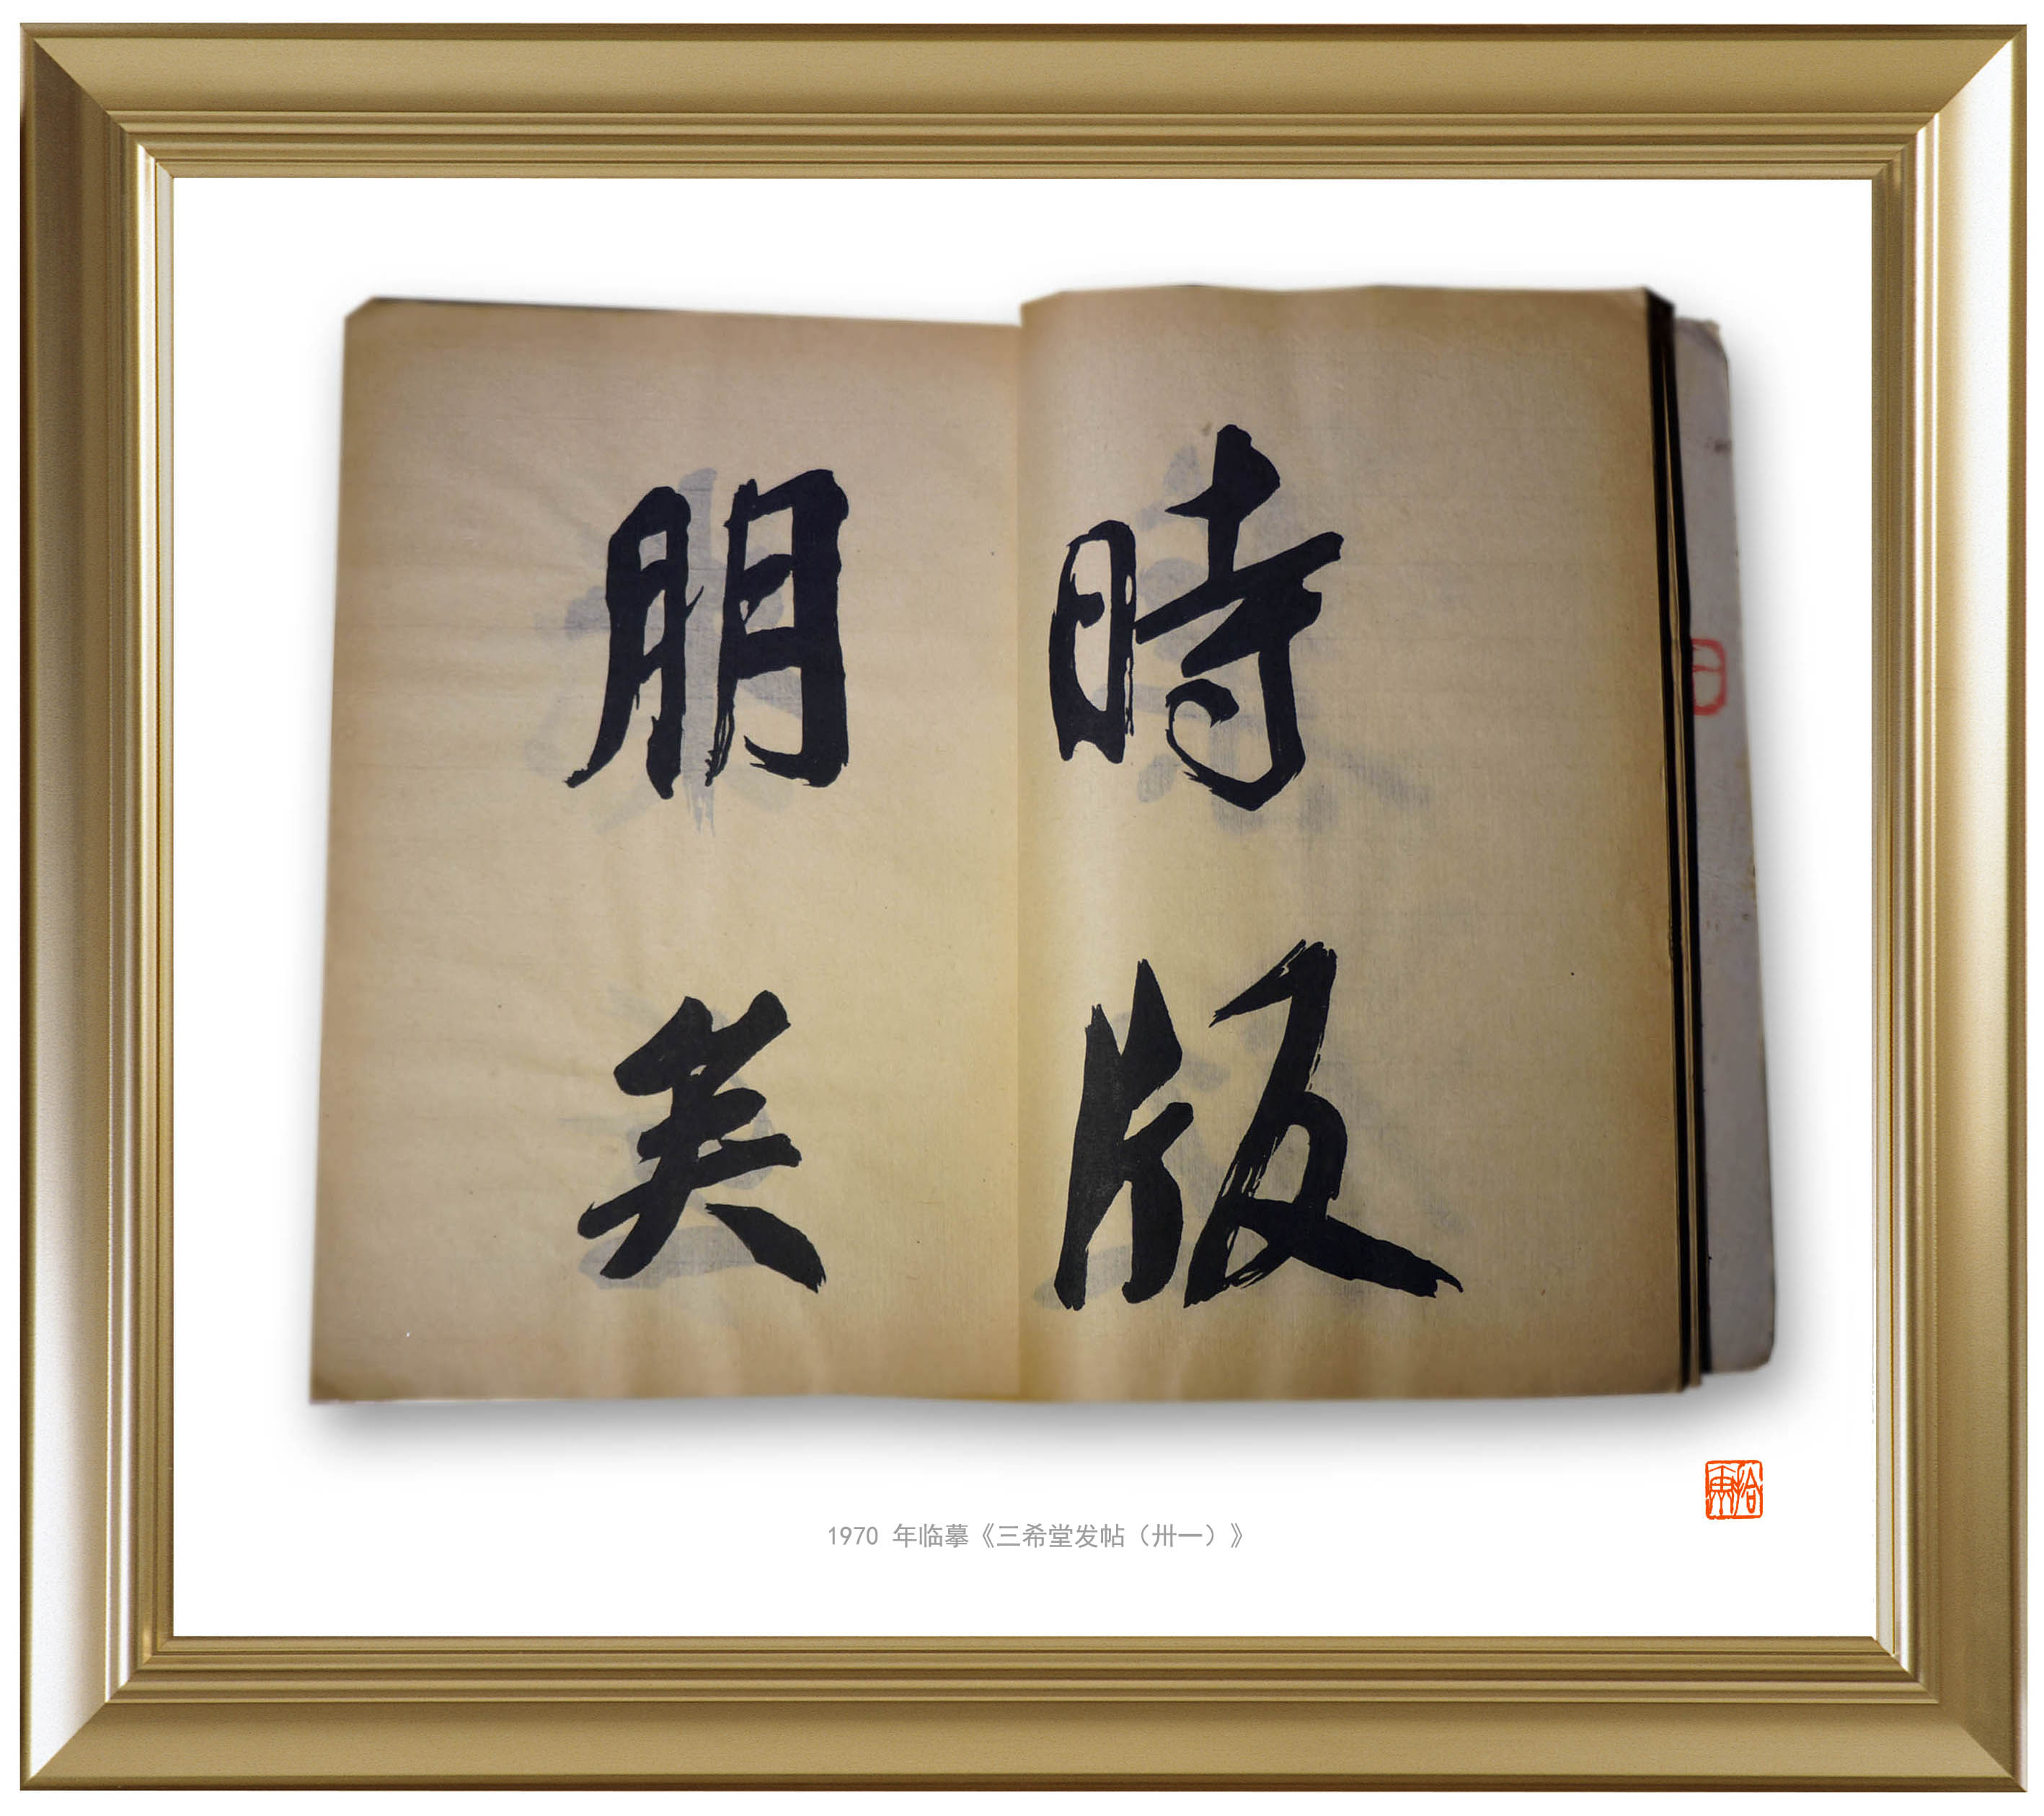 時版
朋
1970 年临摹《三希堂发帖（卅一）》